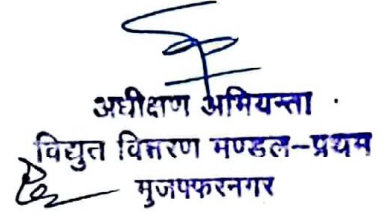 अधीक्षण अभियन्ता
विद्युत वितरण मण्डल-प्रथम
मुजफ्फरनगर